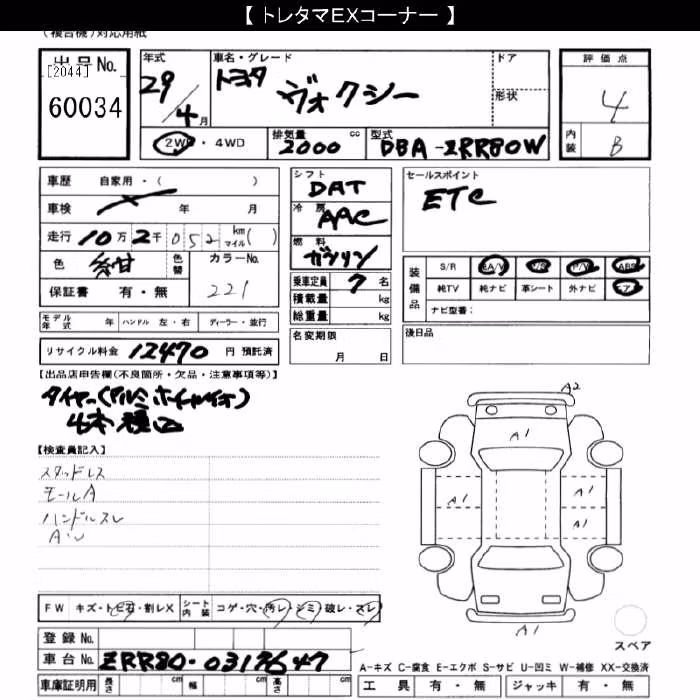 【 トレタマEXコーナー 】
(複合機)対応用紙
出品No.
[2044]
60034
年式
29/4月
車名・グレード
トヨタ ヴォクシー
ドア
形状
評価点
4
内装
B
2WD・4WD
排気量 2000 cc
型式 DBA-ZRR80W
車歴 自家用・( )
車検 年 月
走行 10万2千052 km マイル( )
色 紺
色替
カラーNo. 221
保証書 有・無
シフト DAT
冷房 AAC
燃料 ガソリン
乗車定員 7 名
積載量 kg
総重量 kg
セールスポイント
ETC
装備品
S/R
エA/V
P/S
P/W
ABS
純TV
純ナビ
革シート
外ナビ
エア
ナビ型番:
モデル年式 年
ハンドル 左・右
ディーラー・並行
名変期限
月 日
後日品
リサイクル料金 12470 円 預託済
【出品店申告欄(不良箇所・欠品・注意事項等)】
タイヤー(アルミホイールイオ)
4本積込
【検査員記入】
スタッドレス
モールA
ハンドルスレ
Aい
A2
A1
A1
A1
A1
A1
FW キズ・トビ石・割レX
シート内装 コゲ・穴・汚レ・シミ・破レ・スレ
スペア
登録No.
車台No. ZRR80-0317647
A-キズ C-腐食 E-エクボ S-サビ U-凹ミ W-補修 XX-交換済
車庫証明用 長さ cm 幅 cm 高さ cm
工具 有・無
ジャッキ 有・無